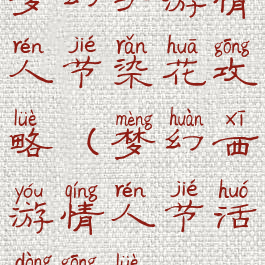 游 情
rén jié rǎn huā gōng
人 节 染 花 攻
lüè mèng huàn xī
略 ( 梦 幻 西
yóu qíng rén jié huó
游 情 人 节 活
dòng gōng lüè